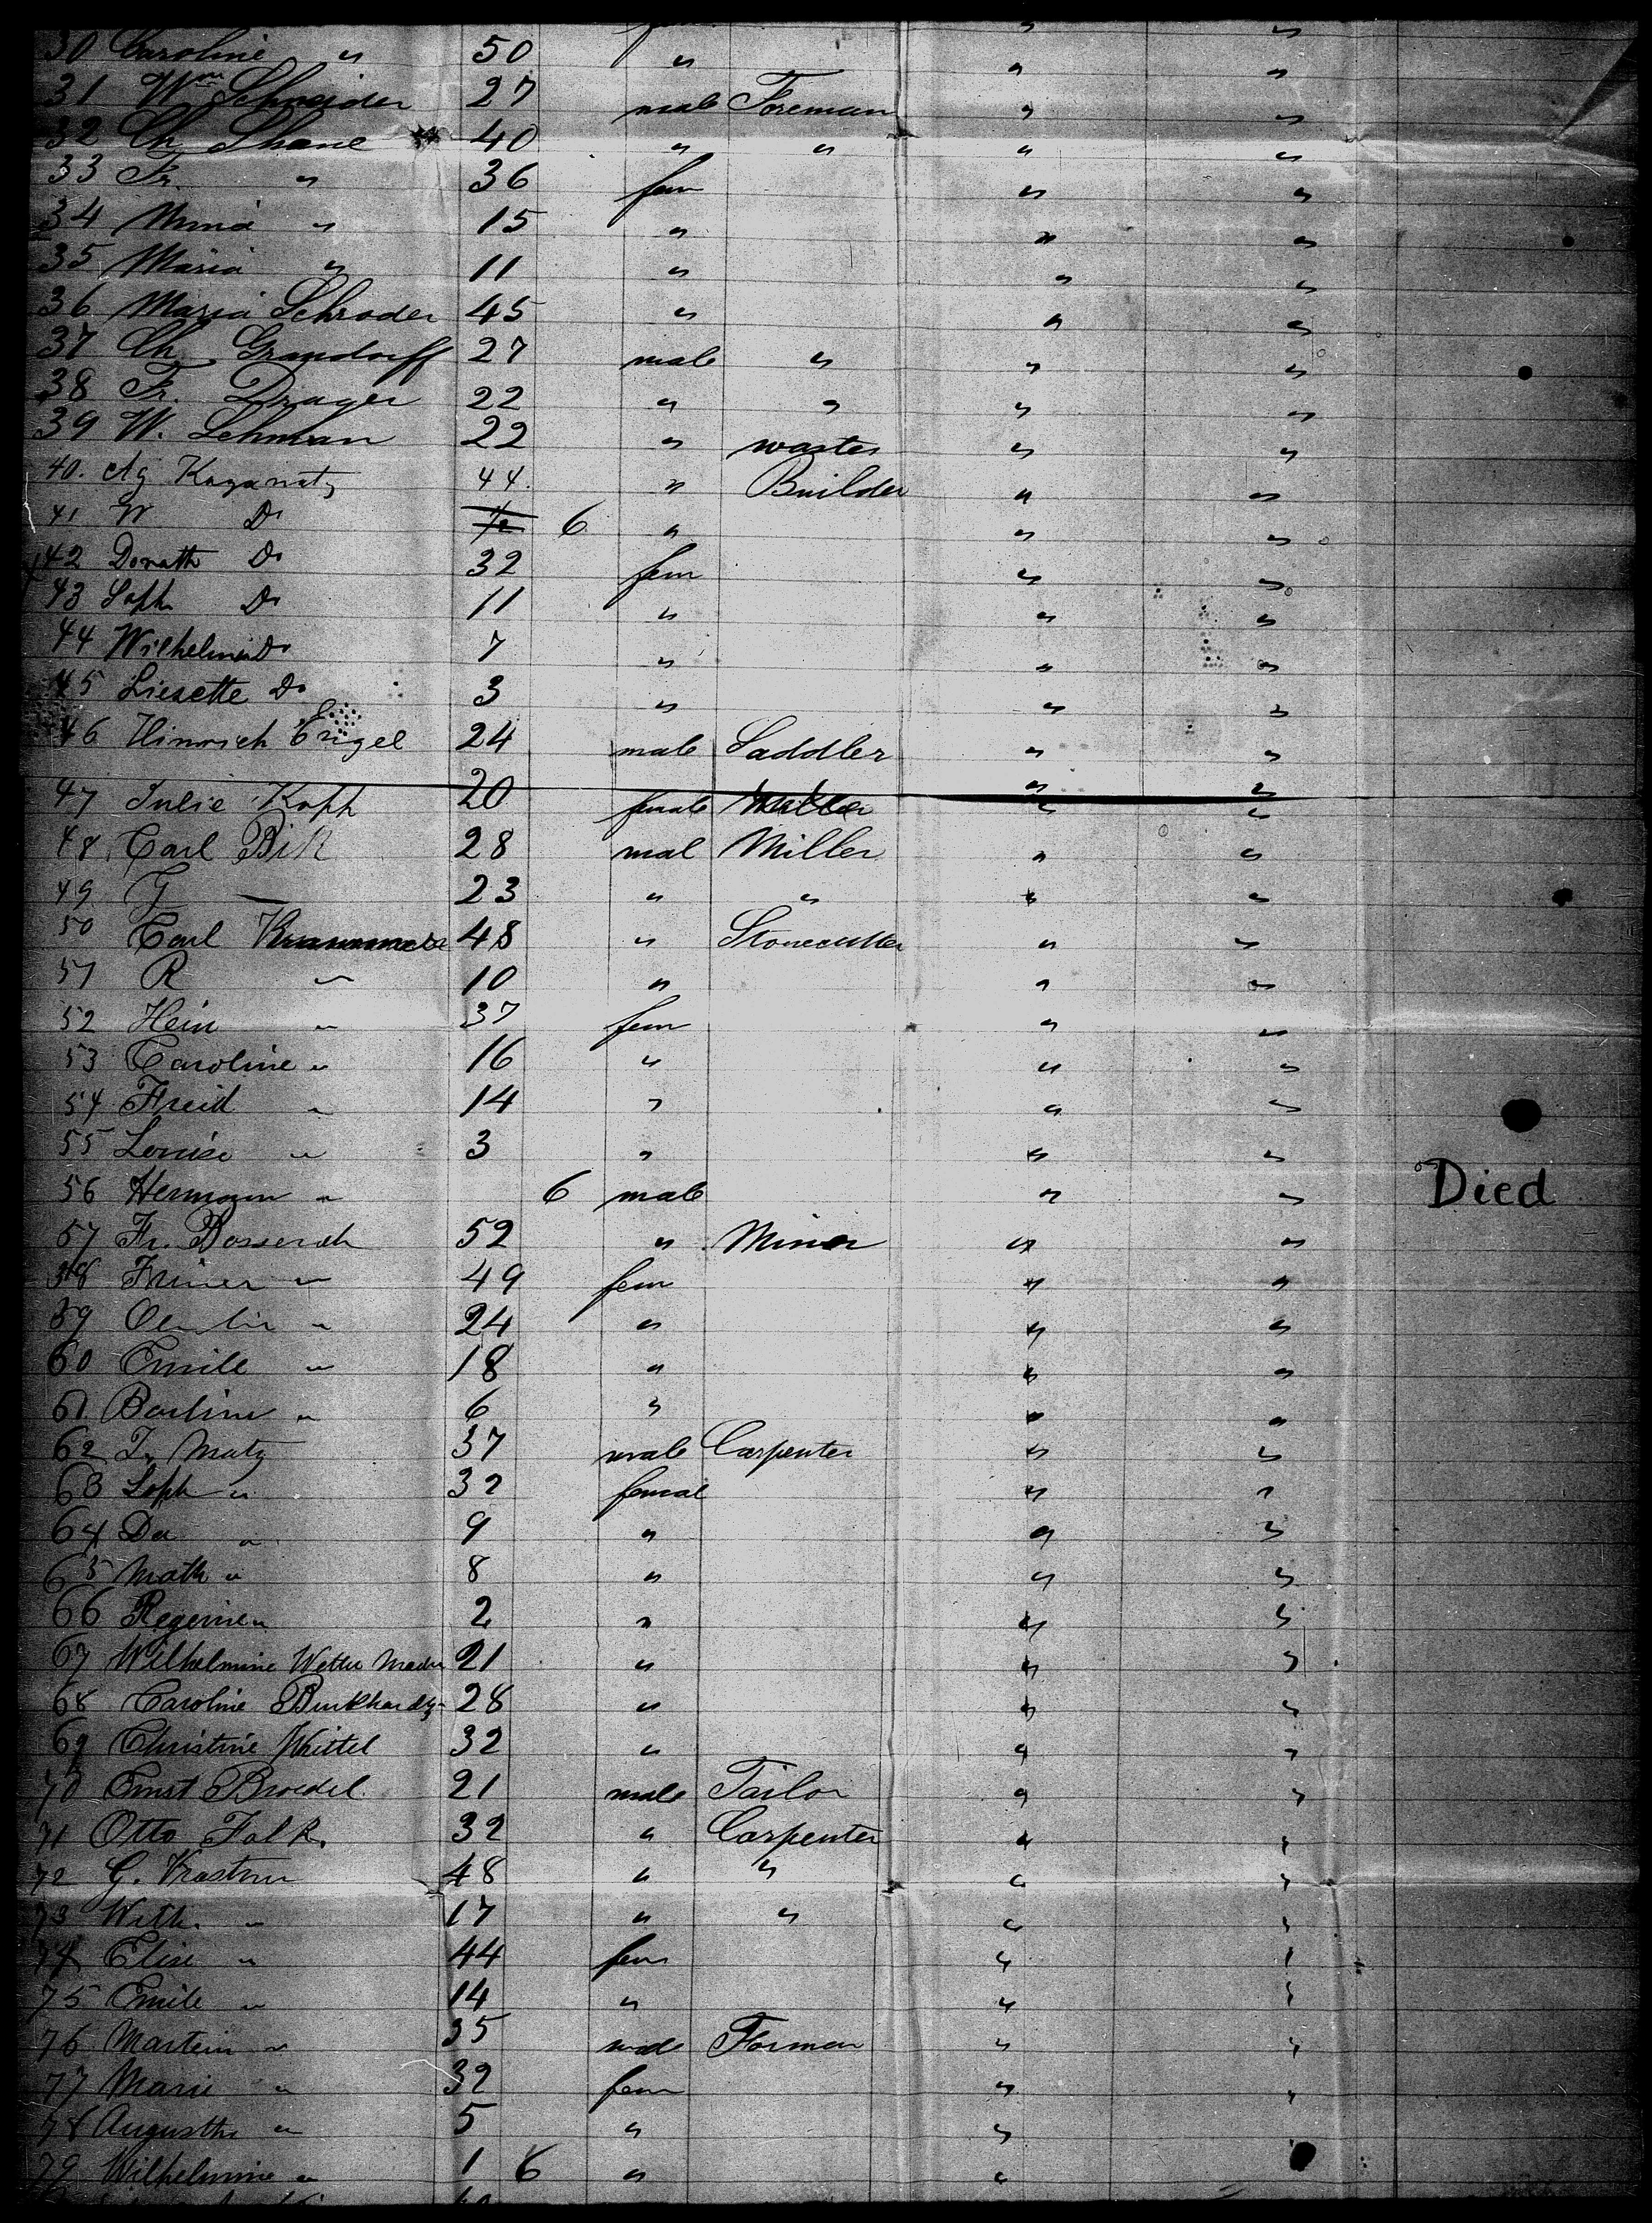 30 Caroline " 50 " " "
31 Wm Schneider 27 male Foreman " "
32 Ch Shane 40 " " " "
33 Fr. " 36 fem " "
34 Mina " 15 " " "
35 Maria " 11 " " "
36 Maria Schroder 45 " " "
37 Ch. Grandorff 27 male " " "
38 Fr. Drager 22 " " " "
39 W. Lehman 22 " waiter " "
40. Ag Kaganatz 44. " Builder " "
41 W Do 6 " " "
42 Dorath Do 32 fem " "
43 Soph Do 11 " " "
44 Wilhelmin Do 7 " " "
45 Liesette Do 3 " " "
46 Hinrich Engel 24 male Saddler " "
47 Julie Koph 20 female " "
48 Carl Bik 28 mal Miller " "
49 23 " " " "
50 Carl 48 " Stonecutter " "
51 R " 10 " " "
52 Hein " 37 fem " "
53 Caroline " 16 " " "
54 Freid " 14 " " "
55 Louise " 3 " " "
56 Hermann " 6 male " " Died
57 Fr. Bosserdt 52 " Miner " "
58 " 49 fem " "
59 " 24 " " "
60 Emile " 18 " " "
61 " 6 " " "
62 Matz 37 male Carpenter " "
63 Soph " 32 femal " "
64 Do " 9 " " "
65 Math " 8 " " "
66 Regerine " 2 " " "
67 Wilhelmine 21 " " "
68 Caroline Burkhardy 28 " " "
69 Christine Wittel 32 " " "
70 Ernst Broedel. 21 male Tailor " "
71 Otto Falk. 32 " Carpenter " "
72 G. 48 " " " "
73 With. " 17 " " " "
74 Elise " 44 fem " "
75 Emile " 14 " " "
76 Martein " 35 male Forman " "
77 Marie " 32 fem " "
78 Augusthe " 5 " "
79 Wilhelmine " 1 6 " "